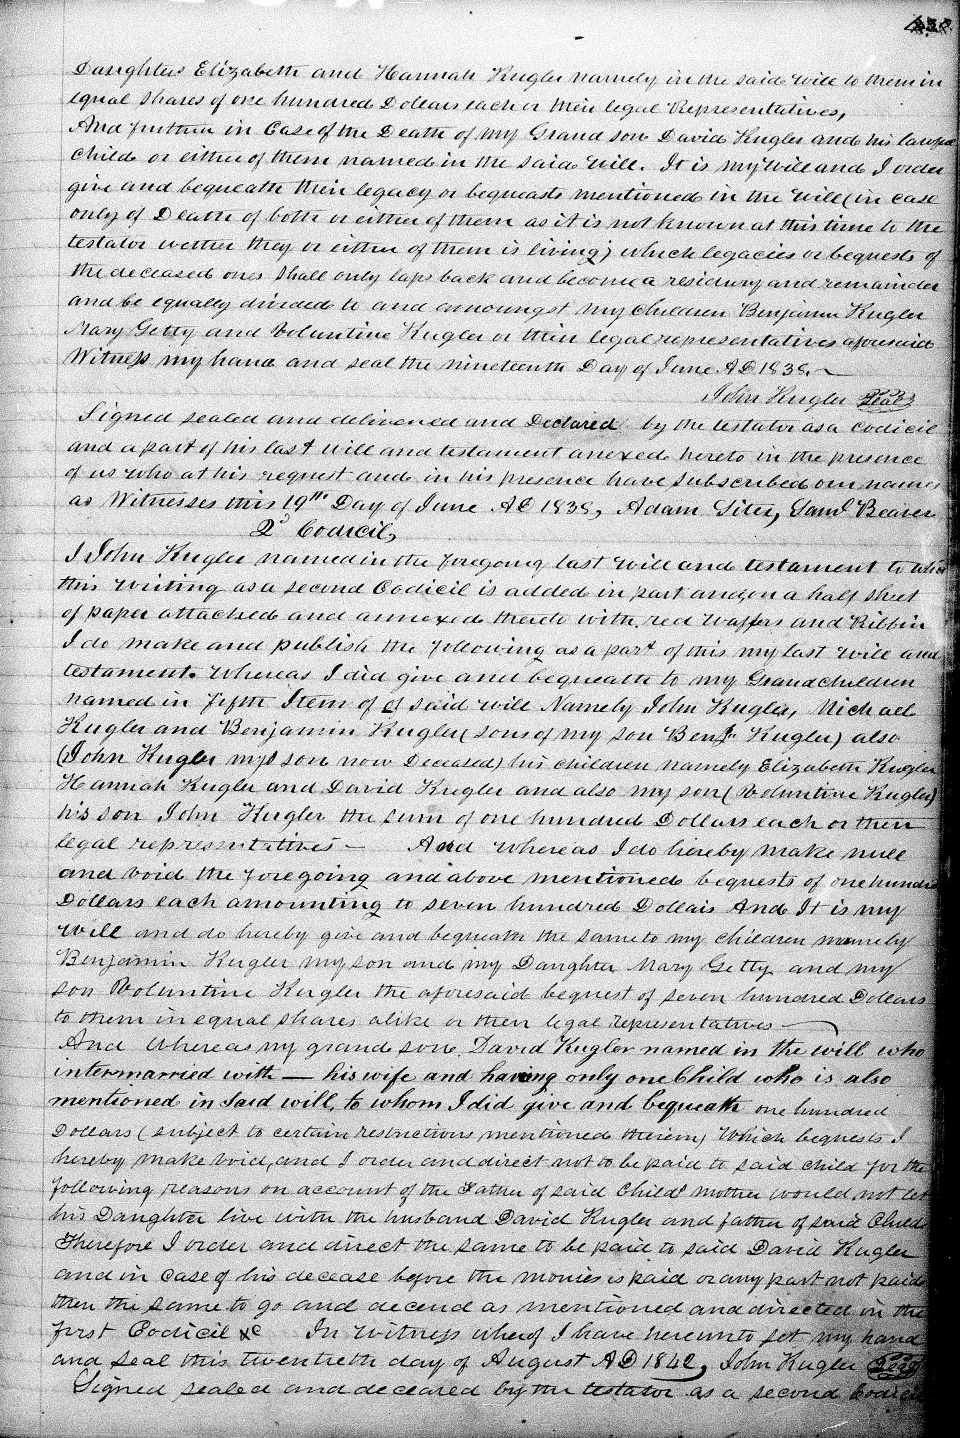 Daughters Elizabeth and Hannah Kugler namely in the said will to them in
equal shares of one hundred Dollars each or their legal Representatives,
And further in Case of the Death of my Grand son David Kugler and his lawful
child or either of them named in the said will. It is my will and I order
give and bequeath their legacy or bequeasts mentioned in the will (in case
only of Death of both or either of them as it is not known at this time to the
testator wether they or either of them is living) which legacies or bequests of
the deceased ones shall only laps back and become a residury and remainder
and be equally divided to and amoungst my children Benjamin Kugler
Mary Getty and Voluntine Kugler or their legal representatives aforesaid
Witness my hand and seal the nineteenth Day of June AD 1838.
John Kugler Seal
Signed sealed and delivered and Declared by the testator as a Codicil
and a part of his last will and testament anexed hereto in the presence
of us who at his request and in his presence have subscribed our names
as Witnesses this 19th Day of June AD 1838, Adam Siter, Saml Beaver
2d Codicil,
I John Kugler named in the foregoing last will and testament to which
this writing as a second Codicil is added in part and on a half sheet
of paper attached and annexed thereto with red Waffers and Ribbin
I do make and publish the following as a part of this my last will and
testament. Whereas I did give and bequeath to my Grandchildren
named in fifth Item of said will Namely John Kugler, Michael
Kugler and Benjamin Kugler (sons of my son Benj. Kugler) also
(John Kugler my son now Deceased) his children namely Elizabeth Kugler
Hannah Kugler and David Kugler and also my son (Voluntine Kugler)
his son John Kugler the sum of one hundred Dollars each or their
legal representatives — And whereas I do hereby make null
and void the foregoing and above mentioned bequests of one hundred
Dollars each amounting to seven hundred Dollars And It is my
Will and do hereby give and bequeath the same to my children namely
Benjamin Kugler my son and my Daughter Mary Getty and my
son Voluntine Kugler the aforesaid bequest of seven hundred Dollars
to them in equal shares alike or their legal representatives —
And Whereas my grand son David Kugler named in the will who
intermarried with — his wife and having only one Child who is also
mentioned in said will, to whom I did give and bequeath one hundred
Dollars (subject to certain restrictions mentioned therein) Which bequests I
hereby make void, and I order and direct not to be paid to said child for the
following reasons on account of the Father of said Childs mother would not let
his Daughter live with the husband David Kugler and father of said Child
Therefore I order and direct the same to be paid to said David Kugler
and in case of his decease before the monies is paid or any part not paid
then the same to go and decend as mentioned and directed in the
first Codicil &c In Witness wherof I have hereunto set my hand
and seal this twentieth day of August AD 1842, John Kugler Seal
Signed sealed and declared by the testator as a second Codicil